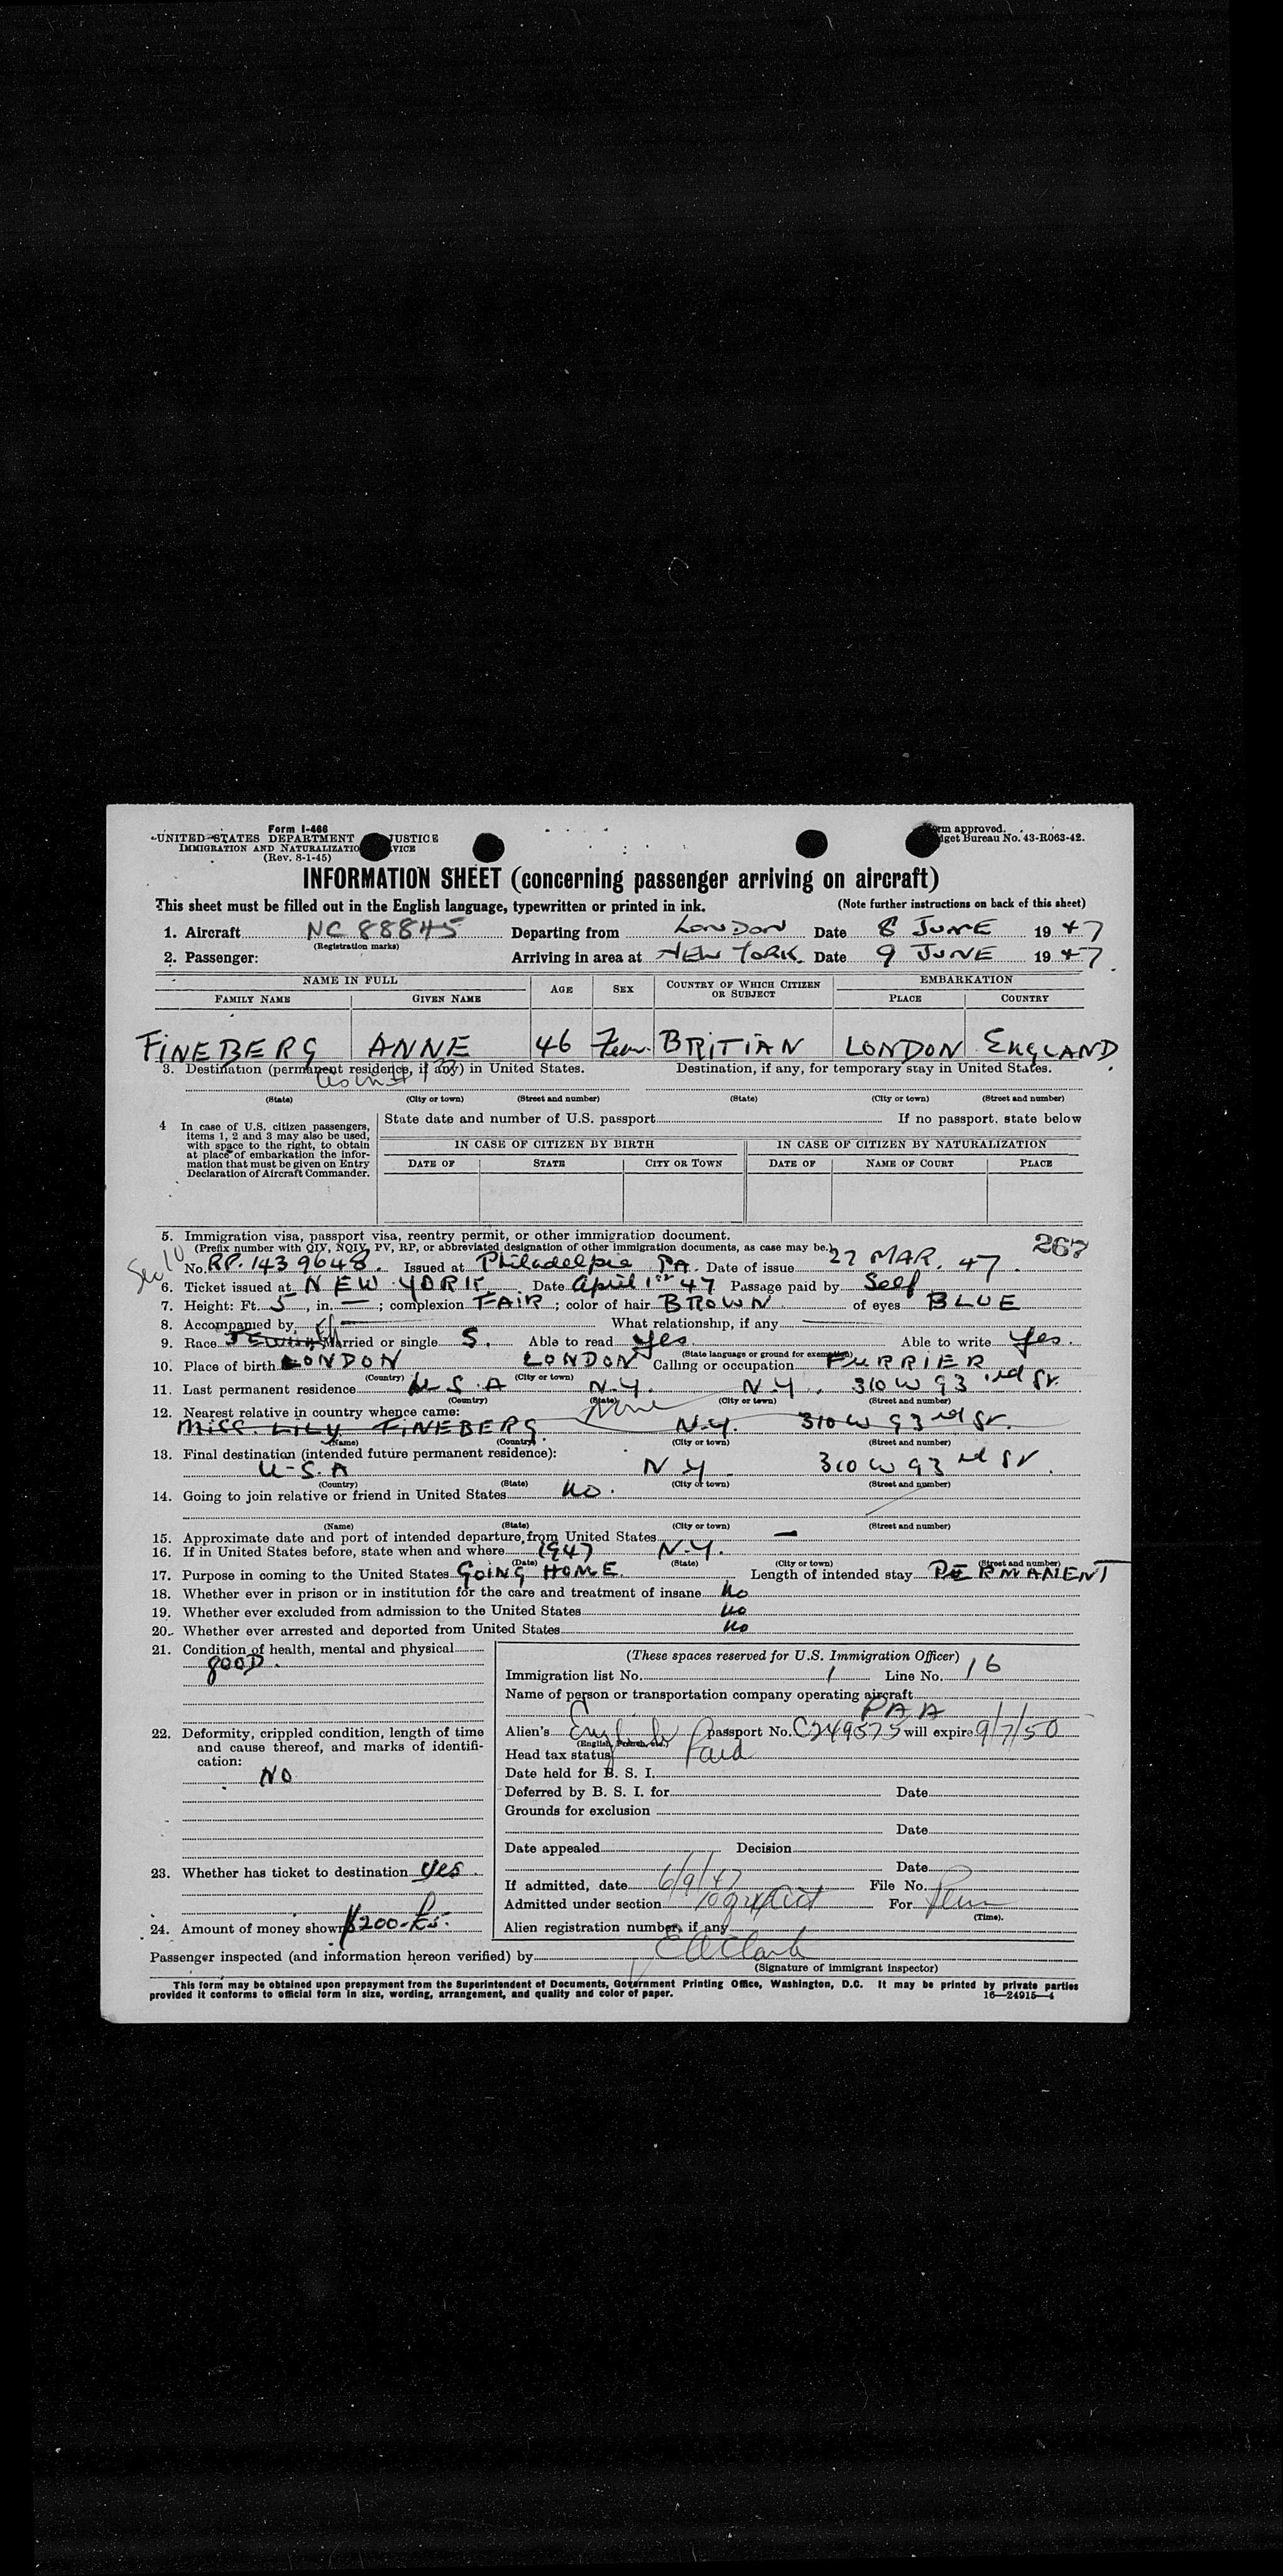 Form I-466
UNITED STATES DEPARTMENT JUSTICE
IMMIGRATION AND NATURALIZATIO VICE
(Rev. 8-1-45)
rm approved.
dget Bureau No. 43-R063-42.
INFORMATION SHEET (concerning passenger arriving on aircraft)
This sheet must be filled out in the English language, typewritten or printed in ink. (Note further instructions on back of this sheet)
1. Aircraft NC 88845 Departing from LONDON Date 8 JUNE 1947
(Registration marks)
2. Passenger: Arriving in area at NEW YORK. Date 9 JUNE 1947
NAME IN FULL AGE SEX COUNTRY OF WHICH CITIZEN OR SUBJECT EMBARKATION
FAMILY NAME GIVEN NAME PLACE COUNTRY
FINEBERG ANNE 46 Fem. BRITIAN LONDON ENGLAND
3. Destination (permanent residence, if any) in United States. Destination, if any, for temporary stay in United States.
(State) (City or town) (Street and number) (State) (City or town) (Street and number)
4 In case of U.S. citizen passengers, items 1, 2 and 3 may also be used, with space to the right, to obtain at place of embarkation the information that must be given on Entry Declaration of Aircraft Commander.
State date and number of U.S. passport If no passport, state below
IN CASE OF CITIZEN BY BIRTH IN CASE OF CITIZEN BY NATURALIZATION
DATE OF STATE CITY OR TOWN DATE OF NAME OF COURT PLACE
5. Immigration visa, passport visa, reentry permit, or other immigration document.
(Prefix number with QIV, NQIV, PV, RP, or abbreviated designation of other immigration documents, as case may be.) 267
Sec 10 No. RP. 1439648. Issued at Philadelpie PA. Date of issue 27 MAR. 47.
6. Ticket issued at NEW YORK Date April 1st 47 Passage paid by Self
7. Height: Ft. 5, in. —; complexion FAIR; color of hair BROWN of eyes BLUE
8. Accompanied by What relationship, if any
9. Race JEWISH Married or single S. Able to read yes Able to write yes.
(State language or ground for exemption)
10. Place of birth LONDON LONDON Calling or occupation FURRIER
(Country) (City or town)
11. Last permanent residence U.S.A N.Y. N.Y. 310 W 93rd St.
(Country) (State) (City or town) (Street and number)
12. Nearest relative in country whence came: None
MISS. LILY FINEBERG N.Y. 310 W 93rd St.
(Name) (Country) (City or town) (Street and number)
13. Final destination (intended future permanent residence):
U-S.A N Y 310 W 93rd St.
(Country) (State) (City or town) (Street and number)
14. Going to join relative or friend in United States No.
(Name) (State) (City or town) (Street and number)
15. Approximate date and port of intended departure from United States —
16. If in United States before, state when and where 1947 N.Y.
(Date) (State) (City or town) (Street and number)
17. Purpose in coming to the United States GOING HOME. Length of intended stay PERMANENT
18. Whether ever in prison or in institution for the care and treatment of insane No
19. Whether ever excluded from admission to the United States No
20. Whether ever arrested and deported from United States No
21. Condition of health, mental and physical
gooD.
22. Deformity, crippled condition, length of time and cause thereof, and marks of identification:
NO
23. Whether has ticket to destination yes
24. Amount of money shown $200-
(These spaces reserved for U.S. Immigration Officer)
Immigration list No. 1 Line No. 16
Name of person or transportation company operating aircraft
PAA
Alien's English passport No. C249575 will expire 9/7/50
(English, French, etc.)
Head tax status Paid
Date held for B. S. I.
Deferred by B. S. I. for Date
Grounds for exclusion
Date
Date appealed Decision
Date
If admitted, date 6/9/47 File No.
Admitted under section For Perm
(Time).
Alien registration number, if any
Passenger inspected (and information hereon verified) by E A Clark
(Signature of immigrant inspector)
This form may be obtained upon prepayment from the Superintendent of Documents, Government Printing Office, Washington, D.C. It may be printed by private parties
provided it conforms to official form in size, wording, arrangement, and quality and color of paper. 16—24915-4